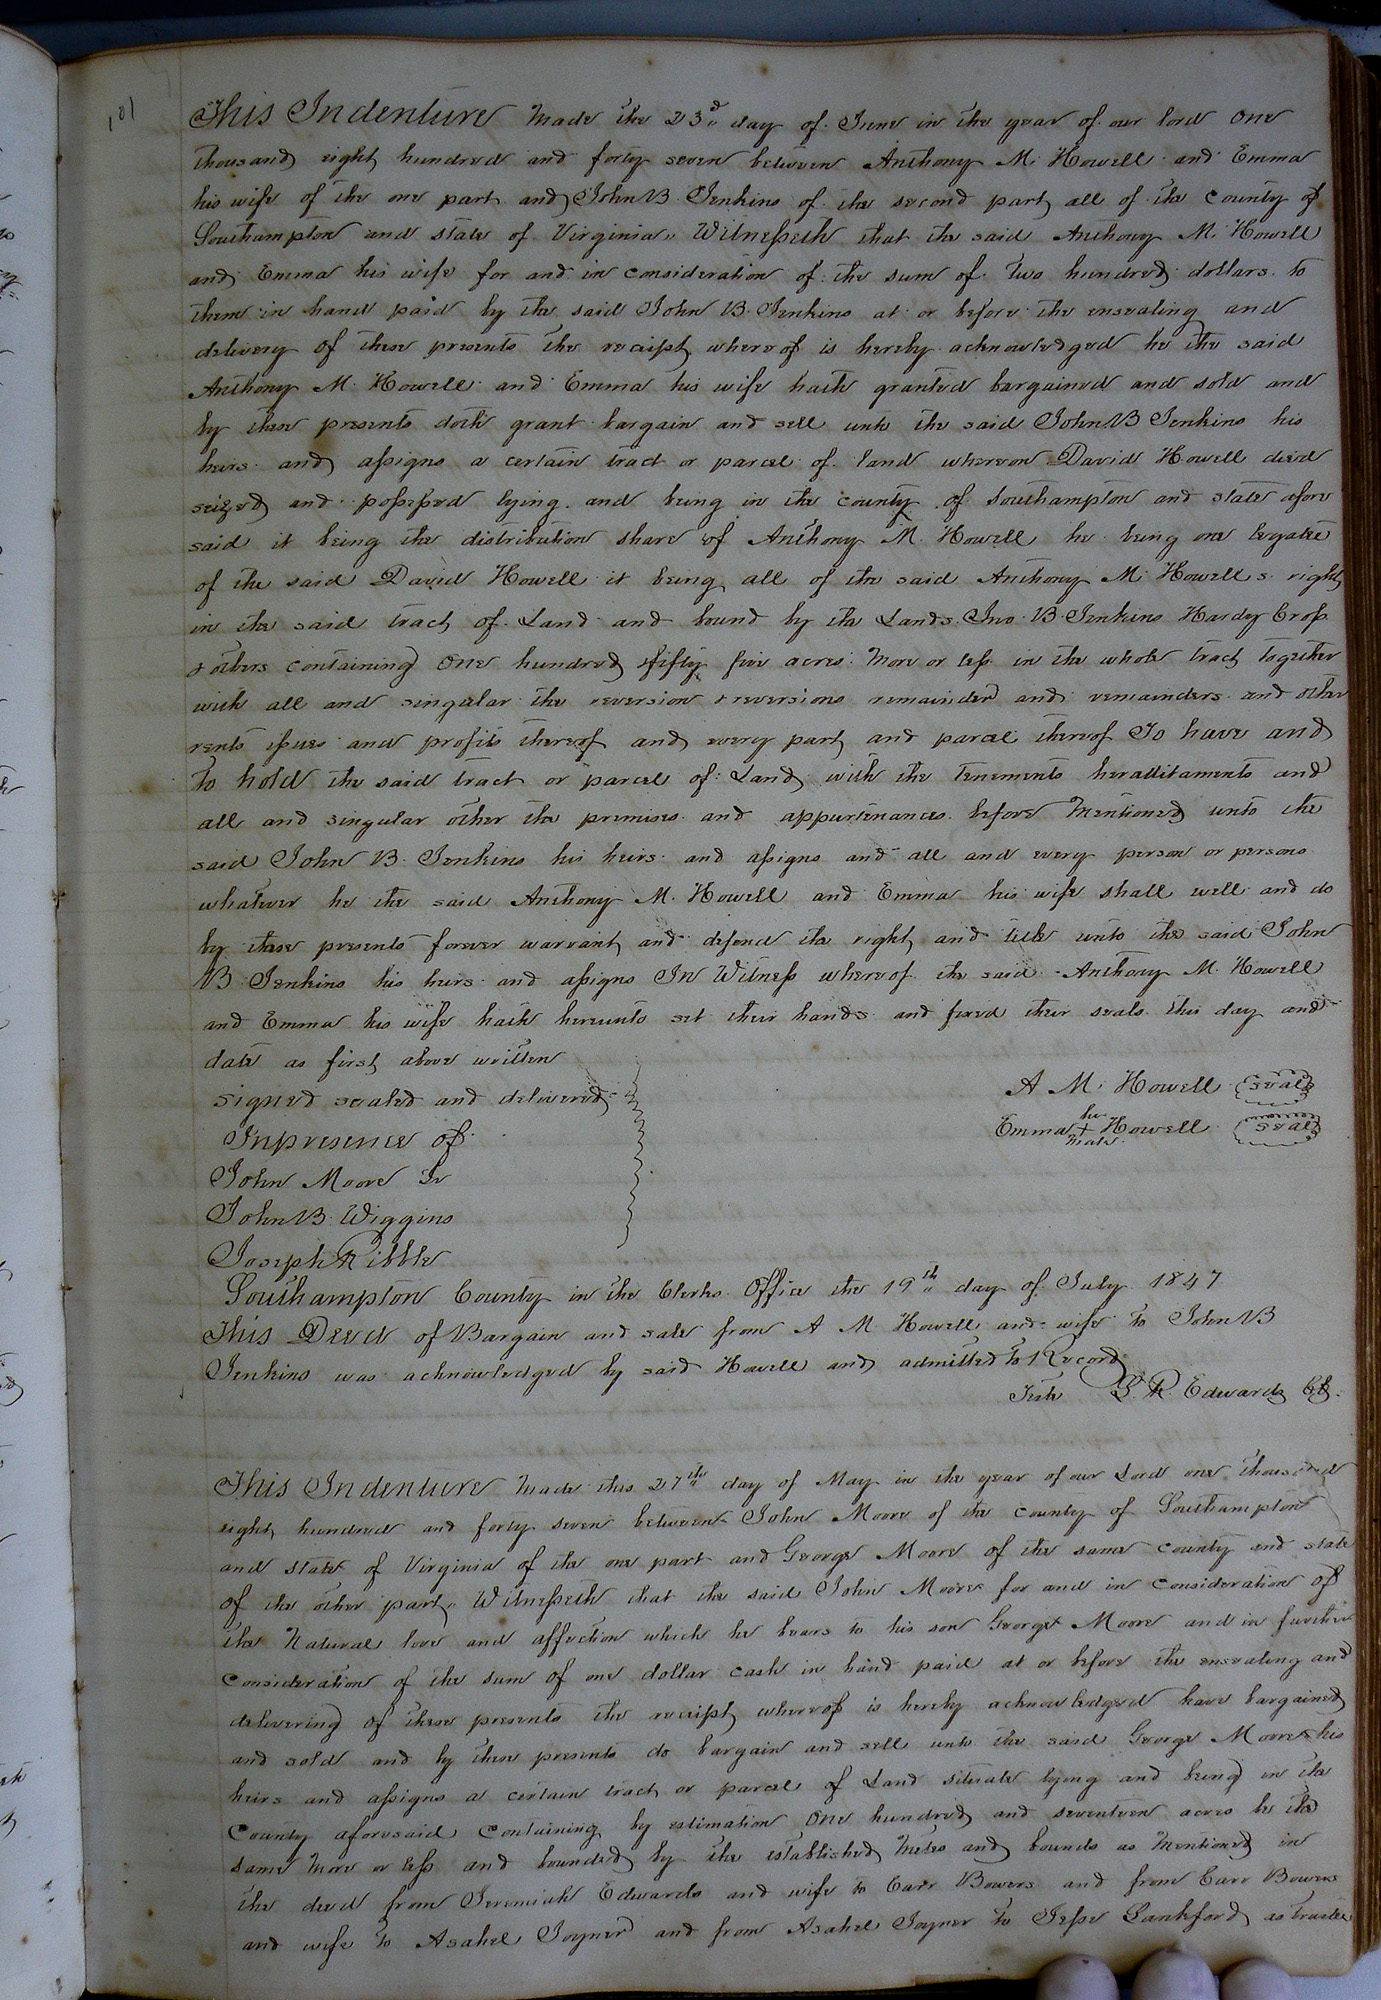 101
This Indenture Made the 23d day of June in the year of our lord One
thousand eight hundred and forty seven between Anthony M. Howell and Emma
his wife of the one part and John B Jenkins of the second part all of the County of
Southampton and state of Virginia Witnesseth that the said Anthony M. Howell
and Emma his wife for and in consideration of the sum of two hundred dollars to
them in hand paid by the said John B. Jenkins at or before the ensealing and
delivery of these presents the receipt whereof is hereby acknowledged he the said
Anthony M. Howell and Emma his wife hath granted bargained and sold and
by these presents doth grant bargain and sell unto the said John B Jenkins his
heirs and assigns a certain tract or parcel of land whereon David Howell died
seized and possessed lying and being in the county of Southampton and state afore
said it being the distribution share of Anthony M. Howell he being one legatee
of the said David Howell it being all of the said Anthony M. Howells right
in the said tract of Land and bound by the Lands Jno. B. Jenkins Hardy Cross
& others containing One hundred fifty five acres More or less in the whole tract together
with all and singular the reversion & reversions remainder and remainders and other
rents issues and profits thereof and every part and parcel thereof To have and
to hold the said tract or parcel of Land with the tenements heraditaments and
all and singular other the premises and appurtenances before Mentioned unto the
said John B. Jenkins his heirs and assigns and all and every person or persons
whatever he the said Anthony M. Howell and Emma his wife shall well and do
by these presents forever warrant and defend the right and title unto the said John
B Jenkins his heirs and assigns In Witness whereof the said Anthony M. Howell
and Emma his wife hath hereunto set their hands and fixed their seals this day and
date as first above written
signed sealed and delivered A M. Howell seal
In presence of Emma her X mark Howell seal
John Moore Sr
John B. Wiggins
Joseph Kibble
Southampton County in the Clerks Office the 19th day of July 1847
This Deed of Bargain and sale from A M Howell and wife to John B
Jenkins was acknowledged by said Howell and admitted to Record
Teste L. R. Edwards Clk.
This Indenture Made this 27th day of May in the year of our Lord one thousand
eight hundred and forty seven between John Moore of the county of Southampton
and state of Virginia of the one part and George Moore of the same county and state
of the other part, Witnesseth that the said John Moore for and in consideration of
the Natural love and affection which he bears to his son George Moore and in further
consideration of the sum of one dollar cash in hand paid at or before the ensealing and
delivering of these presents the receipt whereof is hereby acknowledged have bargained
and sold and by these presents do bargain and sell unto the said George Moore his
heirs and assigns a certain tract or parcel of Land situate lying and being in the
County aforesaid Containing by estimation One hundred and seventeen acres be the
same More or less and bounded by the established Metes and bounds as Mentioned in
the deed from Jeremiah Edwards and wife to Carr Bowers and from Carr Bowers
and wife to Asahel Joyner and from Asahel Joyner to Jesse Lankford as trustee